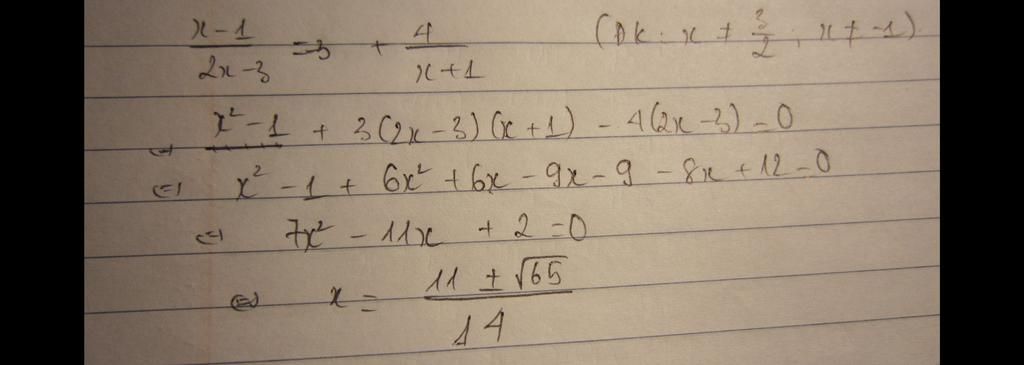 \frac{x-1}{2x-3} = 3 + \frac{4}{x+1} (ĐK: x ≠ \frac{3}{2}; x ≠ -1)
⇔ x² - 1 + 3(2x-3)(x+1) - 4(2x-3) = 0
⇔ x² - 1 + 6x² + 6x - 9x - 9 - 8x + 12 = 0
⇔ 7x² - 11x + 2 = 0
⇔ x = \frac{11 ± √65}{14}